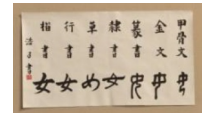 甲骨文
金文
篆書 中
隸書 女
草書 め
行書 女
楷書 女